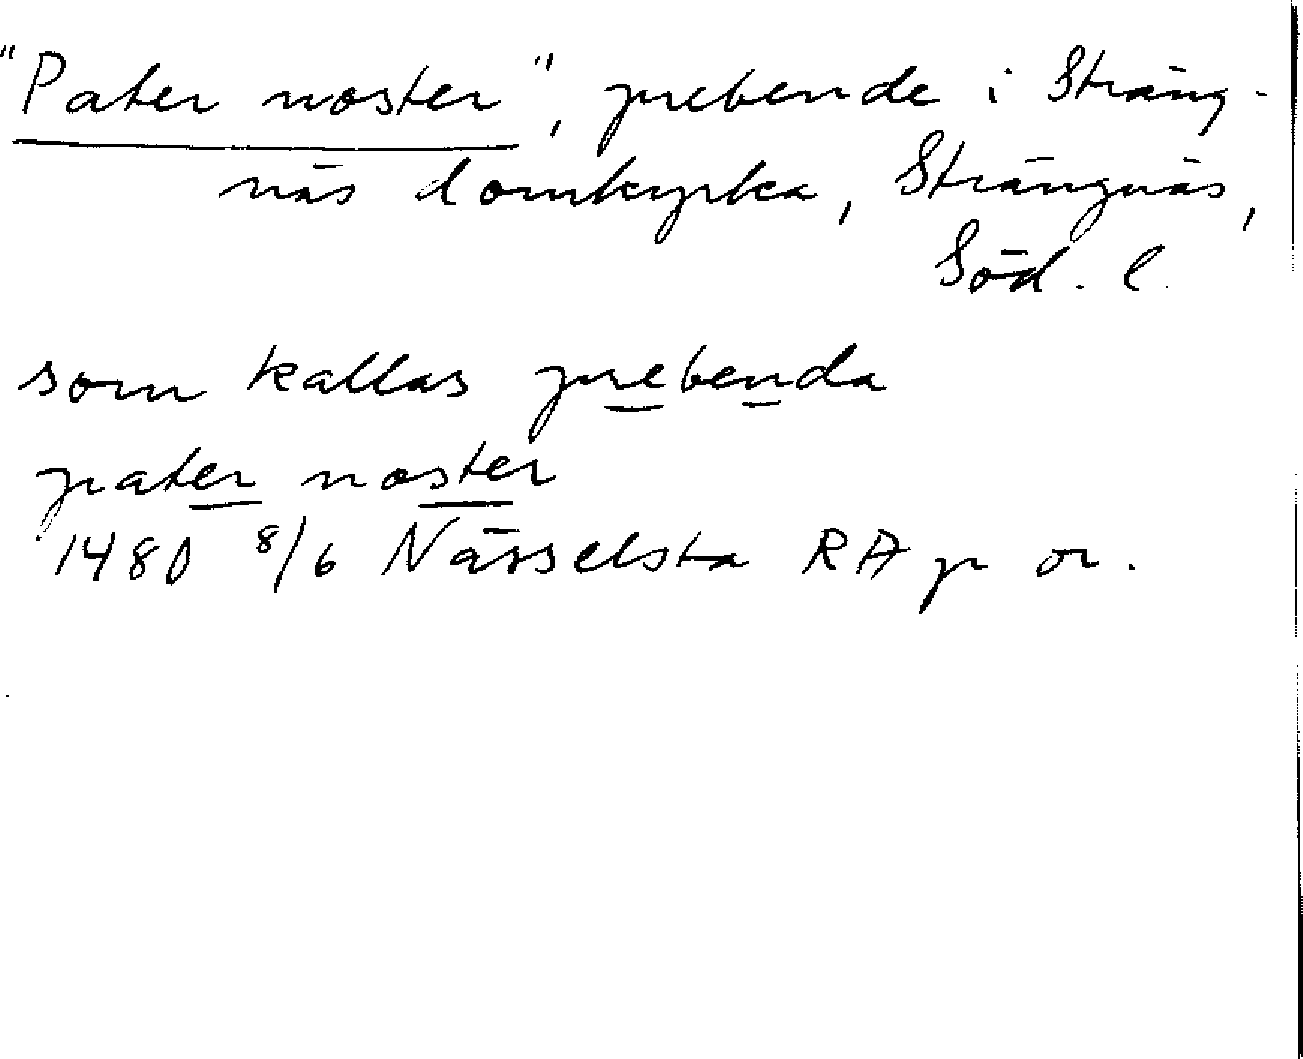 "Pater noster", prebende i Sträng-
näs domkyrka, Strängnäs,
Söd. l.
som kallas prebenda
pater noster
1480 8/6 Nässelsta RA p or.